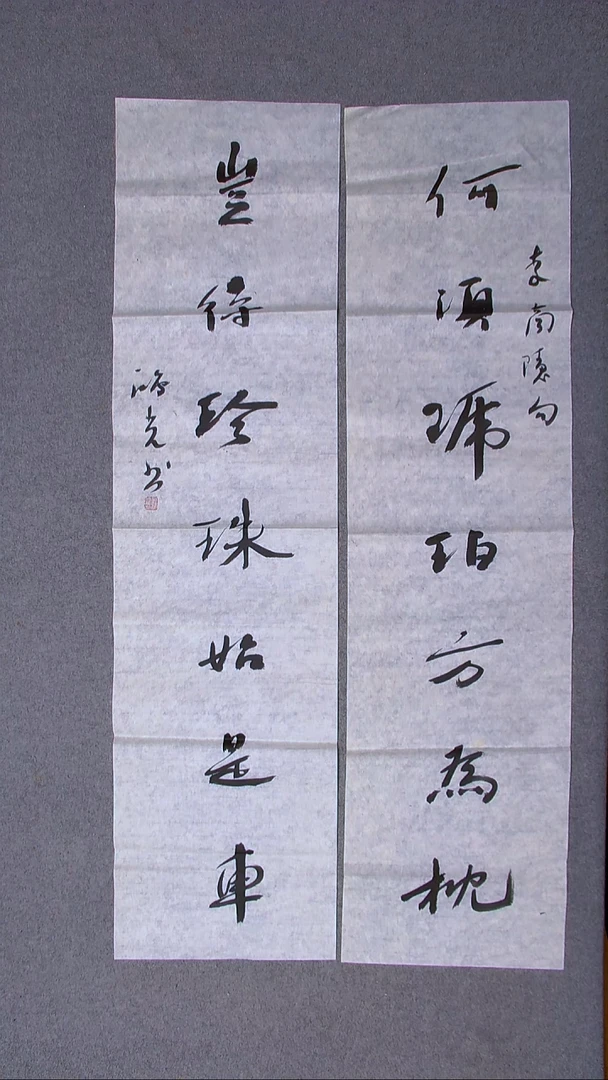 何須琥珀方為枕
李商隐句
豈得珍珠始是車
光书